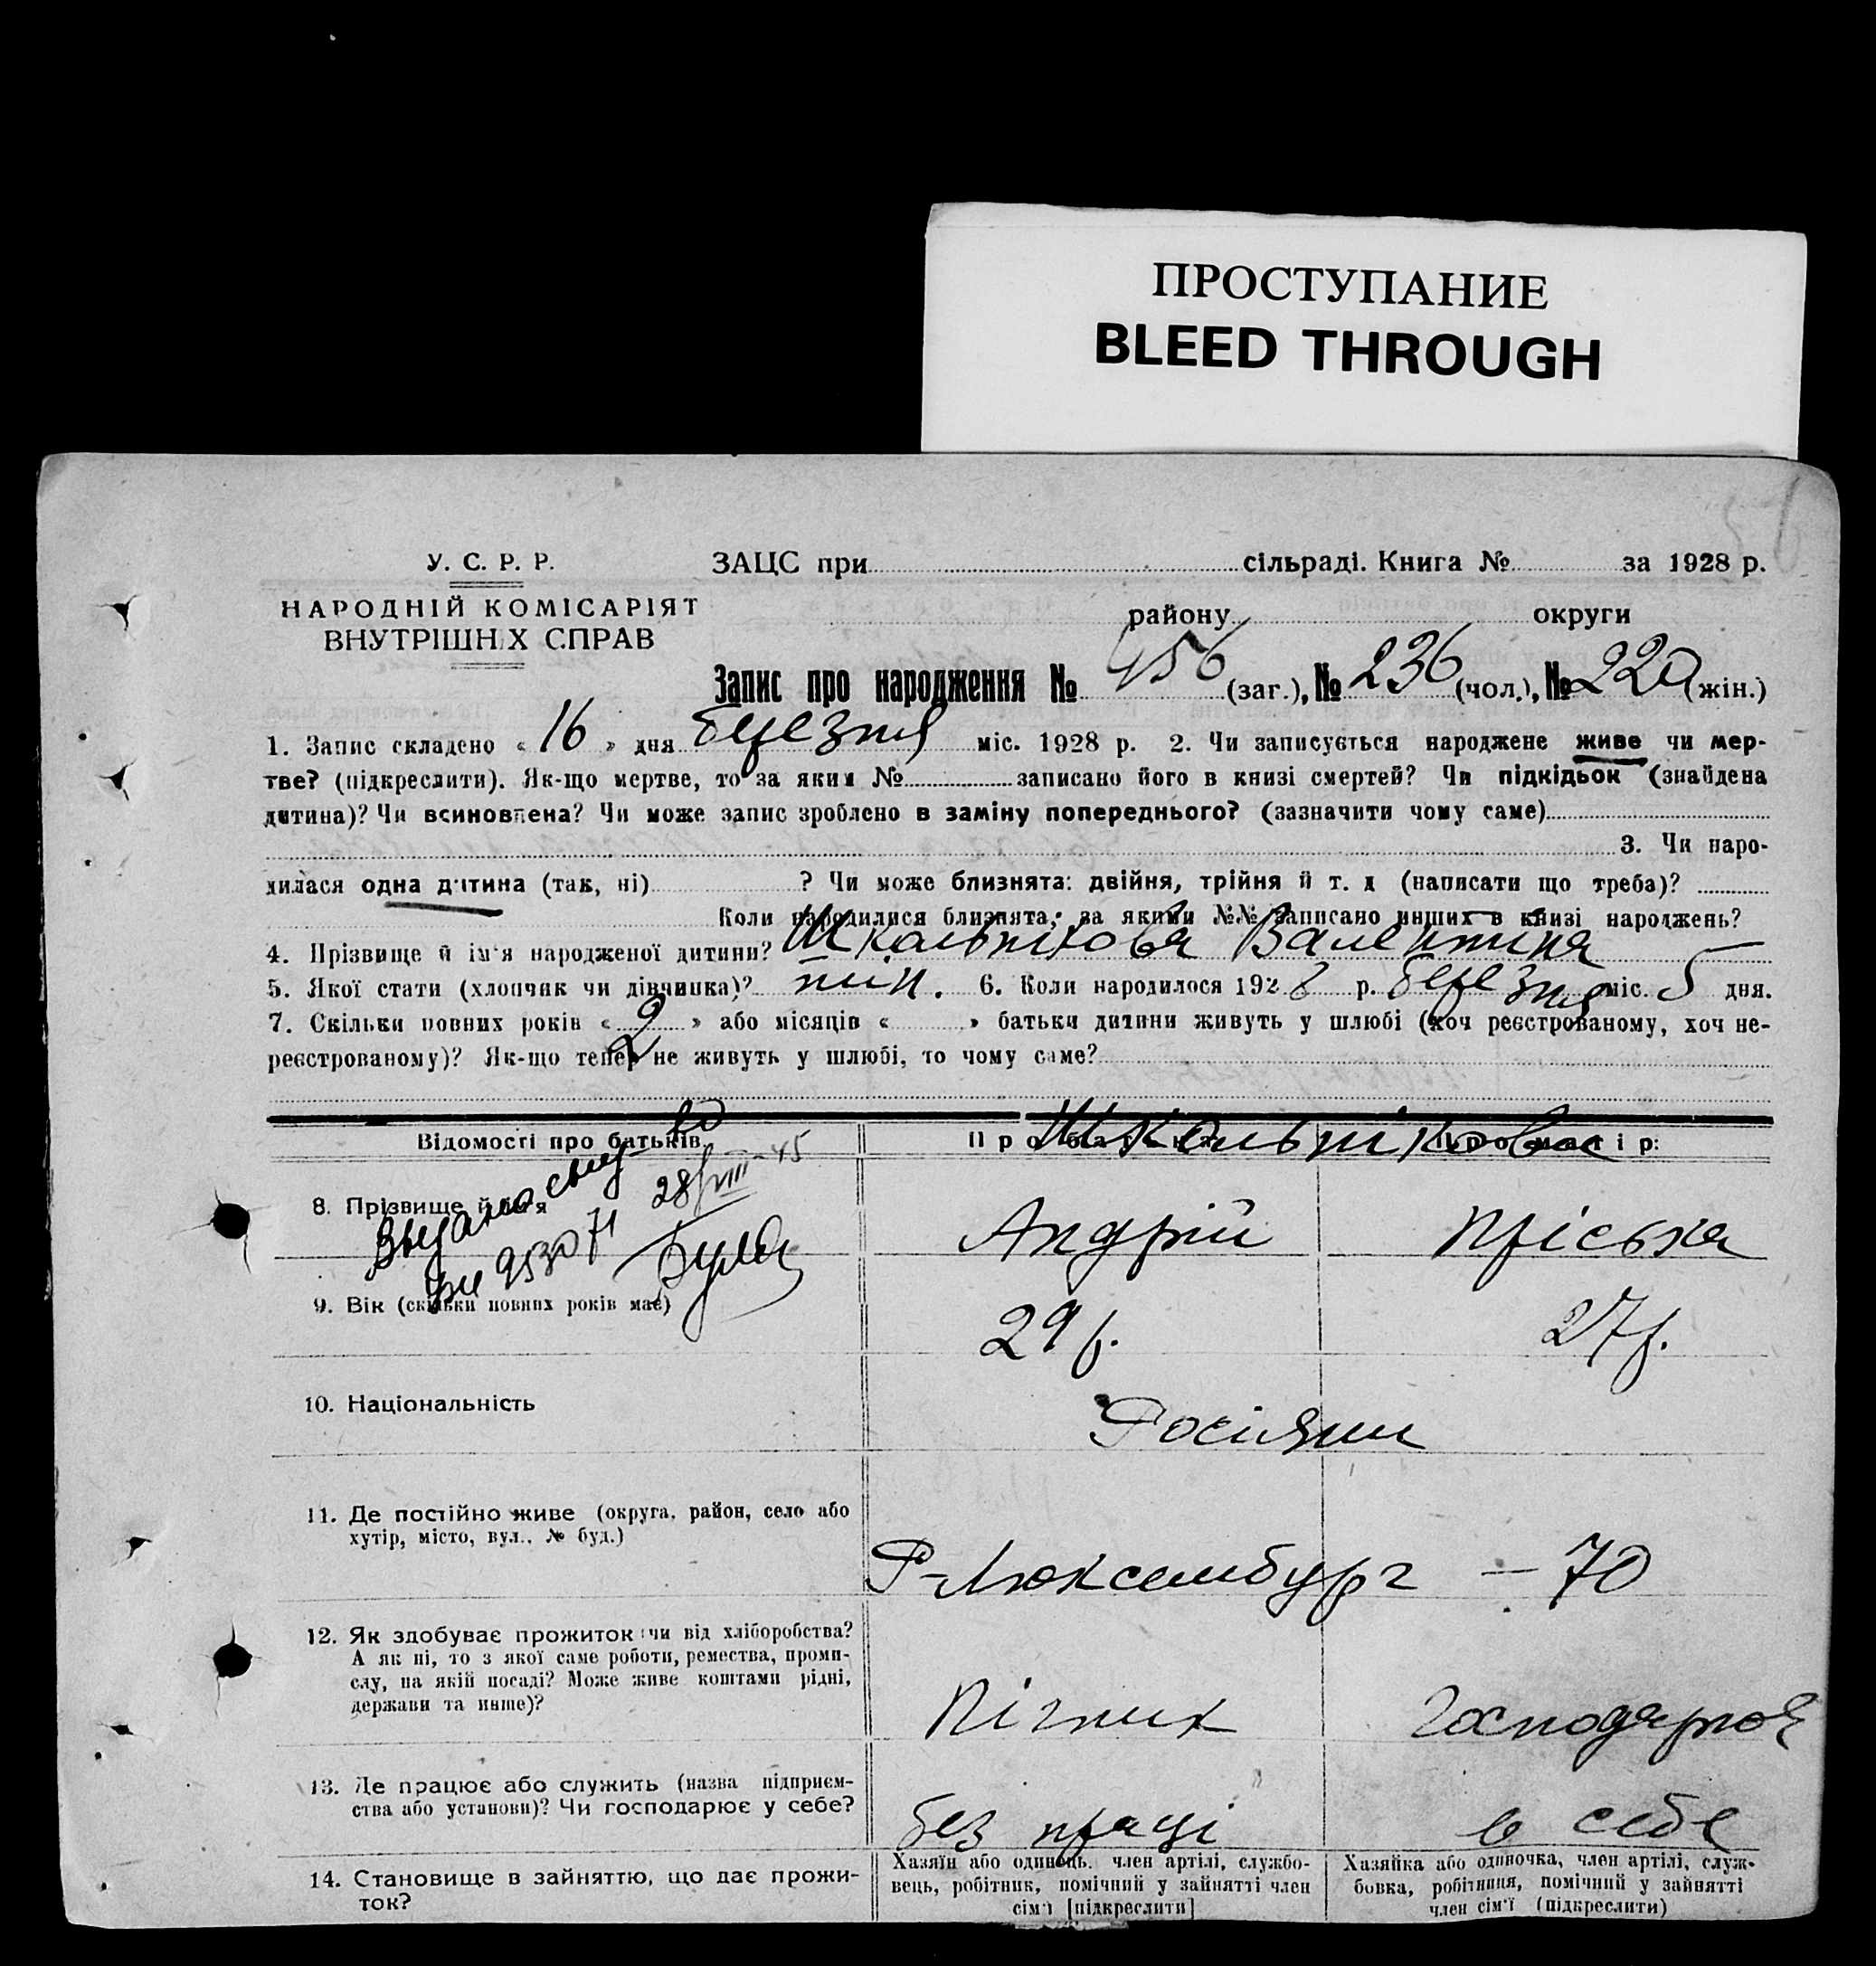 ПРОСТУПАНИЕ
BLEED THROUGH
У. С. Р. Р.
ЗАЦС при сільраді. Книга № за 1928 р.
НАРОДНІЙ КОМІСАРІЯТ
ВНУТРІШНІХ СПРАВ
району округи
Запис про народження № 456 (заг.), № 236 (чол.), № 220 (жін.)
1. Запис складено « 16 » дня березня міс. 1928 р. 2. Чи записується народжене живе чи мер-
тве? (підкреслити). Як-що мертве, то за яким № записано його в книзі смертей? Чи підкідьок (знайдена
дитина)? Чи всиновлена? Чи може запис зроблено в заміну попереднього? (зазначити чому саме)
3. Чи наро-
дилася одна дитина (так, ні) ? Чи може близнята: двійня, трійня й т. д (написати що треба)?
Коли народилися близнята, за якими №№ записано инших в книзі народжень?
4. Прізвище й ім'я народженої дитини? Школьнікова Валентина
5. Якої стати (хлопчик чи дівчинка)? жін. 6. Коли народилося 1928 р. березня міс. 5 дня.
7. Скільки повних років « 9 » або місяців « » батьки дитини живуть у шлюбі (хоч реєстрованому, хоч не-
реєстрованому)? Як-що тепер не живуть у шлюбі, то чому саме?
Відомості про батьків Про батька Про матір:
Школьнікови
8. Прізвище й ім'я Андрій Пріська
28/VIII-45
9. Вік (скільки повних років має) 29 р. 27 р.
10. Національність Росіяни
11. Де постійно живе (округа, район, село або
хутір, місто, вул., № буд.)
Р-Люксембург - 70
12. Як здобуває прожиток: чи від хліборобства?
А як ні, то з якої саме роботи, ремества, проми-
слу, на якій посаді? Може живе коштами рідні,
держави та инше)?
Пічник Господарює
13. Де працює або служить (назва підприєм-
ства або установи)? Чи господарює у себе?
без праці в себе
14. Становище в зайняттю, що дає прожи-
ток?
Хазяїн або одинець, член артілі, службо-
вець, робітник, помічний у зайнятті член
сім'ї [підкреслити]
Хазяйка або одиночка, член артілі, служ-
бовка, робітниця, помічний у зайнятті
член сім'ї (підкреслити)